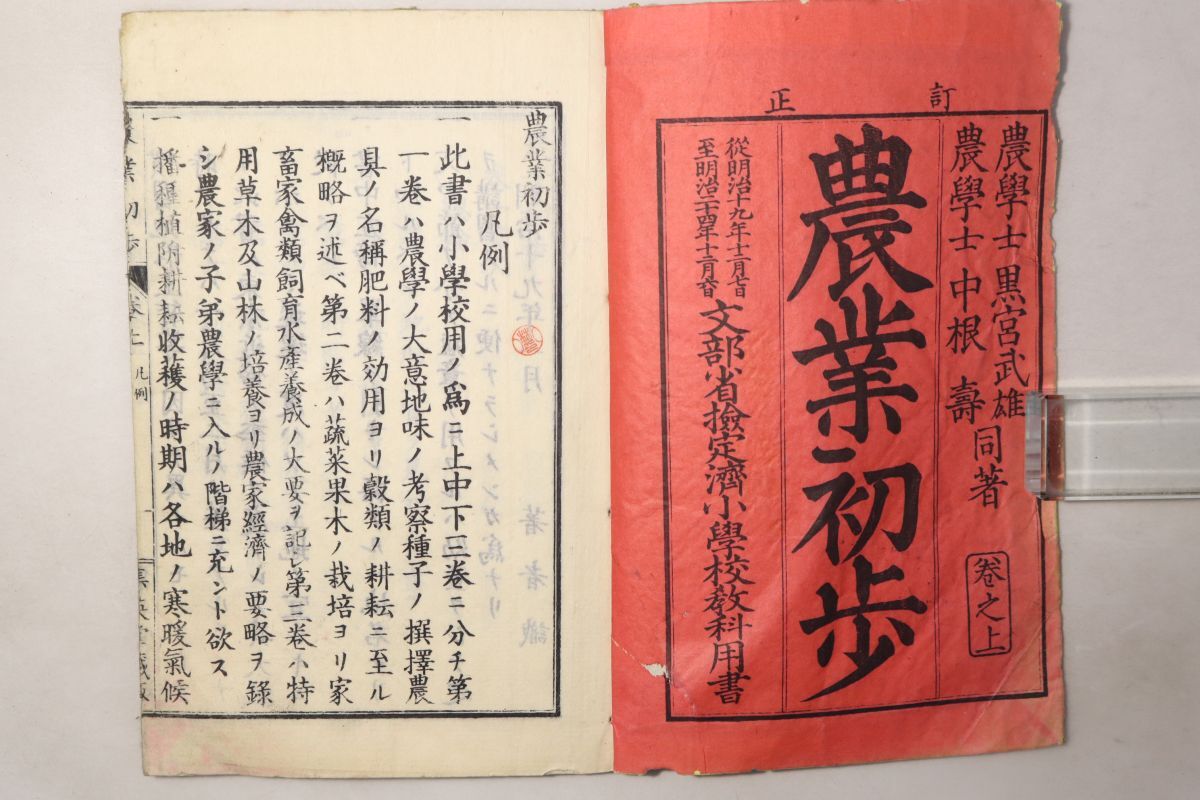 訂正
農學士 黒宮武雄
農學士 中根壽
同著
卷之上
農業初歩
從明治十九年十二月七日
至明治二十四年十二月六日
文部省檢定濟小學校教科用書
農業初歩
凡例
一 此書ハ小學校用ノ爲ニ上中下三卷ニ分チ第
一卷ハ農學ノ大意地味ノ考察種子ノ撰擇農
具ノ名稱肥料ノ効用ヨリ穀類ノ耕耘ニ至ル
概略ヲ述ベ第二卷ハ蔬菜果木ノ栽培ヨリ家
畜家禽類飼育水產養成ノ大要ヲ記シ第三卷ハ特
用草木及山林ノ培養ヨリ農家經濟ノ要略ヲ錄
シ農家ノ子弟農學ニ入ルノ階梯ニ充ント欲ス
一 播種植附耕耘收穫ノ時期ハ各地ノ寒暖氣候
農業初歩 卷上 凡例
集英堂藏版